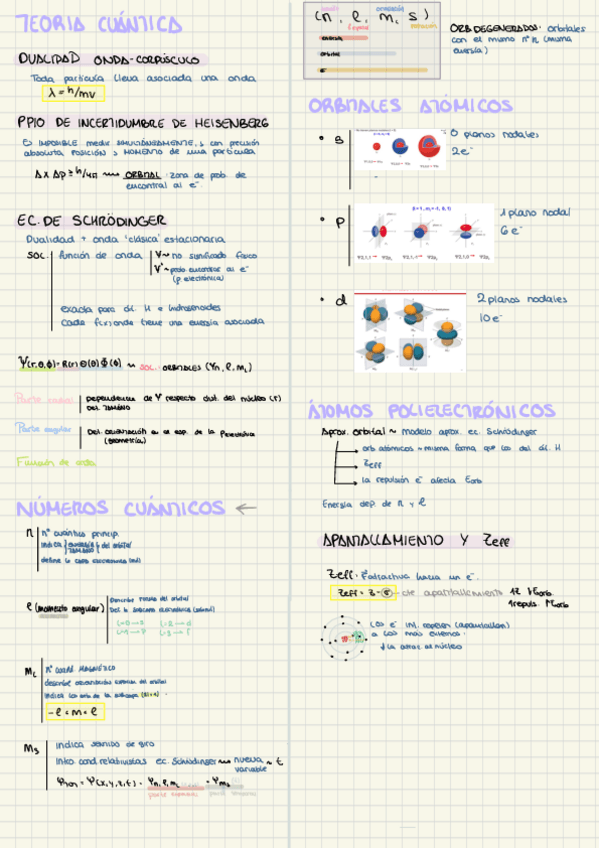 TEORIA CUÁNTICA
DUALIDAD ONDA-CORPÚSCULO
Toda partícula lleva asociada una onda
λ = h/mv
PPIO DE INCERTIDUMBRE DE HEISENBERG
Es IMPOSIBLE medir SIMULTÁNEAMENTE, y con precisión
absoluta, POSICIÓN y MOMENTO de una partícula
Δx Δp ≥ h/4π ORBITAL: zona de prob. de
encontrar al e⁻
EC. DE SCHRÖDINGER
Dualidad + onda 'clásica' estacionaria
SOL. función de onda
Ψ ~ no significado físico
Ψ² ~ prob. encontrar al e⁻
(ρ electrónica)
exacta para át. H e hidrogenoides
cada f(x) onda tiene una energía asociada
Ψ(r,θ,ϕ) = R(r) Θ(θ) Φ(ϕ) ~ SOL: ORBITALES (Ψn, l, ml)
Parte radial
Dependencia de Ψ respecto dist. del núcleo (r)
Det. TAMAÑO
Parte angular
Det. orientación en el esp. de la
(geometría)
Función de onda
NÚMEROS CUÁNTICOS ←
n
nº cuántico princip.
indica ENERGÍA y TAMAÑO del orbital
define la capa electrónica (nivel)
l (momento angular)
Describe forma del orbital
Det. la subcapa electrónica (subnivel)
l=0→s l=2→d
l=1→p l=3→f
ml
nº cuánt. MAGNÉTICO
describe orientación espacial del orbital
indica los orb. de la subcapa (2l+1)
-l ≤ m ≤ l
ms
indica sentido de giro
Intro cond. relativistas ec. Schrödinger nueva ~ t
variable
= Ψ(x,y,z,t) = Ψn, l, ml · Ψms
parte espacial
(n, l, m, s)
energía
orbital
e⁻
ORB DEGENERADOS: orbitales
con el mismo nº n (misma
energía)
ORBITALES ATÓMICOS
• s
0 planos nodales
2e⁻
• p
1 plano nodal
6 e⁻
• d
2 planos nodales
10e⁻
ÁTOMOS POLIELECTRÓNICOS
Aprox. orbital ~ modelo aprox. ec. Schrödinger
orb atómicos = misma forma que los del át. H
Zeff
la repulsión e⁻ afecta Eorb
Energía dep. de n y l
APANTALLAMIENTO Y Zeff
Zeff: Z atractiva hacia un e⁻
Zeff = Z-σ cte de apantallamiento
los e⁻ int. repelen (apantallan)
a los más externos:
↓ la atrac. al núcleo